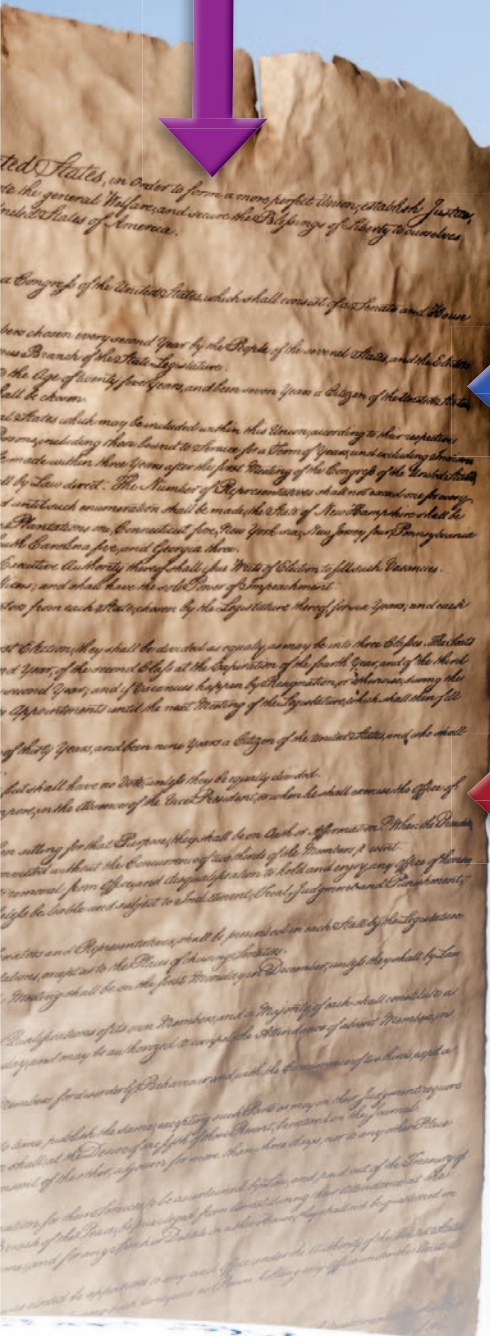 ted States, in Order to form a more perfect Union, establish Justice,
te the general Welfare, and secure the Blessings of Liberty to ourselves
United States of America.
a Congress of the United States, which shall consist of a Senate and House
bers chosen every second Year by the People of the several States, and the Electors
ous Branch of the State Legislature.
to the Age of twenty five Years, and been seven Years a Citizen of the United States,
hall be chosen.
al States which may be included within this Union, according to their respective
erms, including those bound to Service for a Term of Years, and excluding Indians
made within three Years after the first Meeting of the Congress of the United States,
ll by Law direct. The Number of Representatives shall not exceed one for every
d until such enumeration shall be made, the State of New Hampshire shall be
e Plantations one, Connecticut five, New York six, New Jersey four, Pennsylvania
outh Carolina five, and Georgia three.
Executive Authority thereof shall issue Writs of Election to fill such Vacancies.
ficers; and shall have the sole Power of Impeachment.
ators from each State, chosen by the Legislature thereof, for six Years; and each
st Election, they shall be divided as equally as may be into three Classes. The Seats
nd Year, of the second Class at the Expiration of the fourth Year, and of the third
second Year; and if Vacancies happen by Resignation, or otherwise, during the
y Appointments until the next Meeting of the Legislature, which shall then fill
of thirty Years, and been nine Years a Citizen of the United States, and who shall
but shall have no Vote, unless they be equally divided.
mpore, in the Absence of the Vice President, or when he shall exercise the Office of
en sitting for that Purpose, they shall be on Oath or Affirmation. When the President
nvicted without the Concurrence of two thirds of the Members present.
removal from Office, and disqualification to hold and enjoy any Office of honor,
theless be liable and subject to Indictment, Trial, Judgment and Punishment,
enators and Representatives, shall be prescribed in each State by the Legislature
lations, except as to the Places of chusing Senators.
Meeting shall be on the first Monday in December, unless they shall by Law
Qualifications of its own Members, and a Majority of each shall constitute a
day, and may be authorized to compel the Attendance of absent Members, in
Members for disorderly Behaviour, and, with the Concurrence of two thirds, expel a
to time publish the same, excepting such Parts as may in their Judgment require
shall at the Desire of one fifth of those Present, be entered on the Journal.
nsent of the other, adjourn for more than three days, nor to any other Place
ation for their Services, to be ascertained by Law, and paid out of the Treasury of
Breach of the Peace, be privileged from Arrest during their Attendance at the
me; and for any Speech or Debate in either House, they shall not be questioned in
be appointed to any civil Office under the Authority of the United States